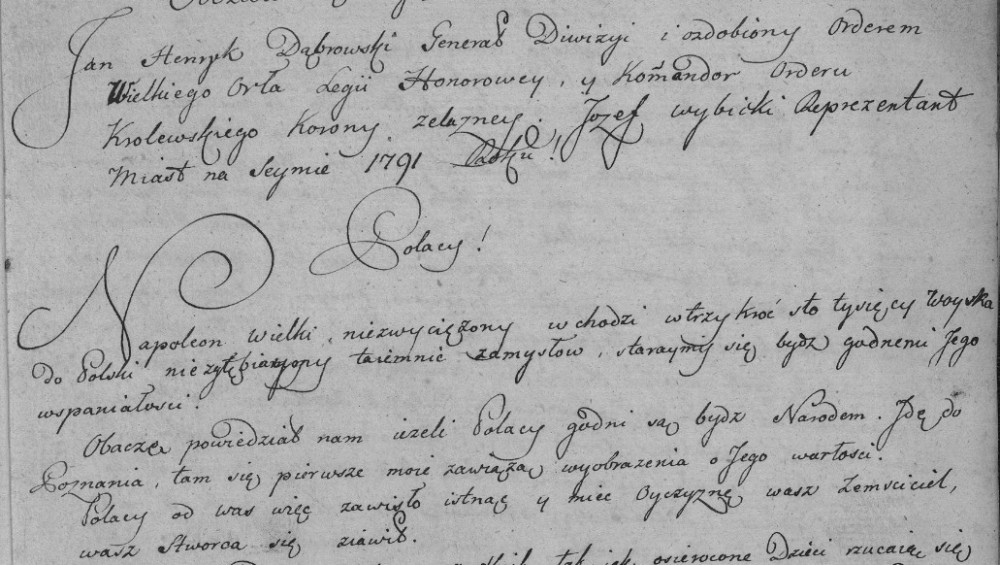 Jan Henryk Dąbrowski Generał Diwizyi i ozdobiony Orderem
Wielkiego Orła Legii Honorowey, y Komandor Orderu
Krolewskiego Korony zelazney. Jozef wybicki Reprezentant
Miast na Seymie 1791 Roku!
Polacy!
Napoleon wielki, niezwyciężony wchodzi w trzy kroć sto tysięcy Woyska
do Polski niezgłębiaiąc taiemnic zamysłow, staraymy się bydz godnemi Jego
wspaniałości.
Obaczę powiedział nam ieżeli Polacy godni są bydz Narodem. Idę do
Poznania, tam się pierwsze moie zawiążą wyobrażenia o Jego wartości.
Polacy od was więc zawisło istnąć y mieć Oyczyznę wasz Zemściciel,
wasz Stworca się ziawił.
tak iak osierocone Dzieci rzucaiąc się